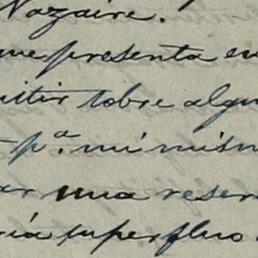 Nazaire.
que presenta su
sobre algu
pª. mi mism
ar una reser
ía superfluo